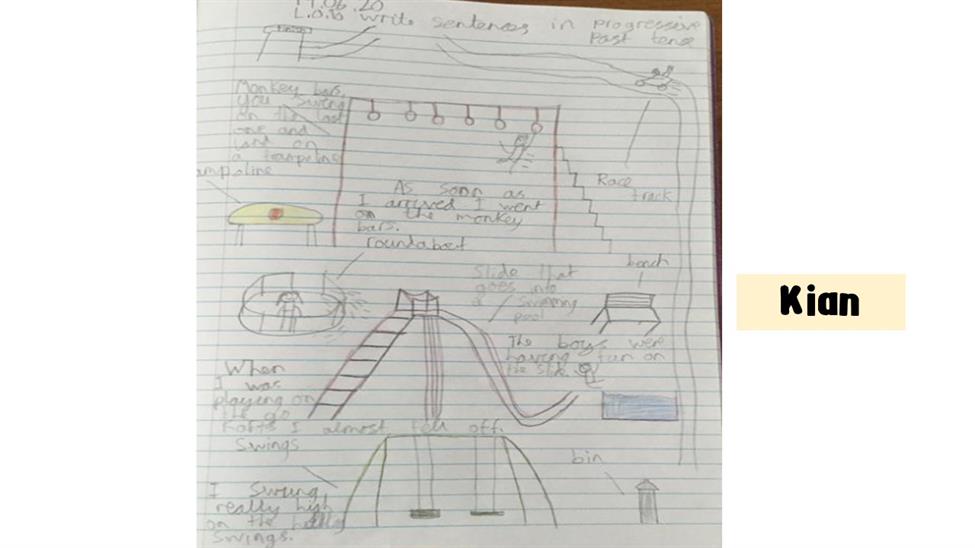 .06.20
L.O.to write sentences in progressive
Past tense
Monkey bars,
you swing
on the last
one and
land on
a trampoline
ampoline
Race
track
As soon as
I arrived I went
on the monkey
bars.
roundabout
bench
Slide that
goes into
a swimming
pool
The boys were
having fun on
the slide.
When
I was
playing on
the go
Karts I almost fell off.
Swings
bin
I swung
really high
on the
swings.
Kian